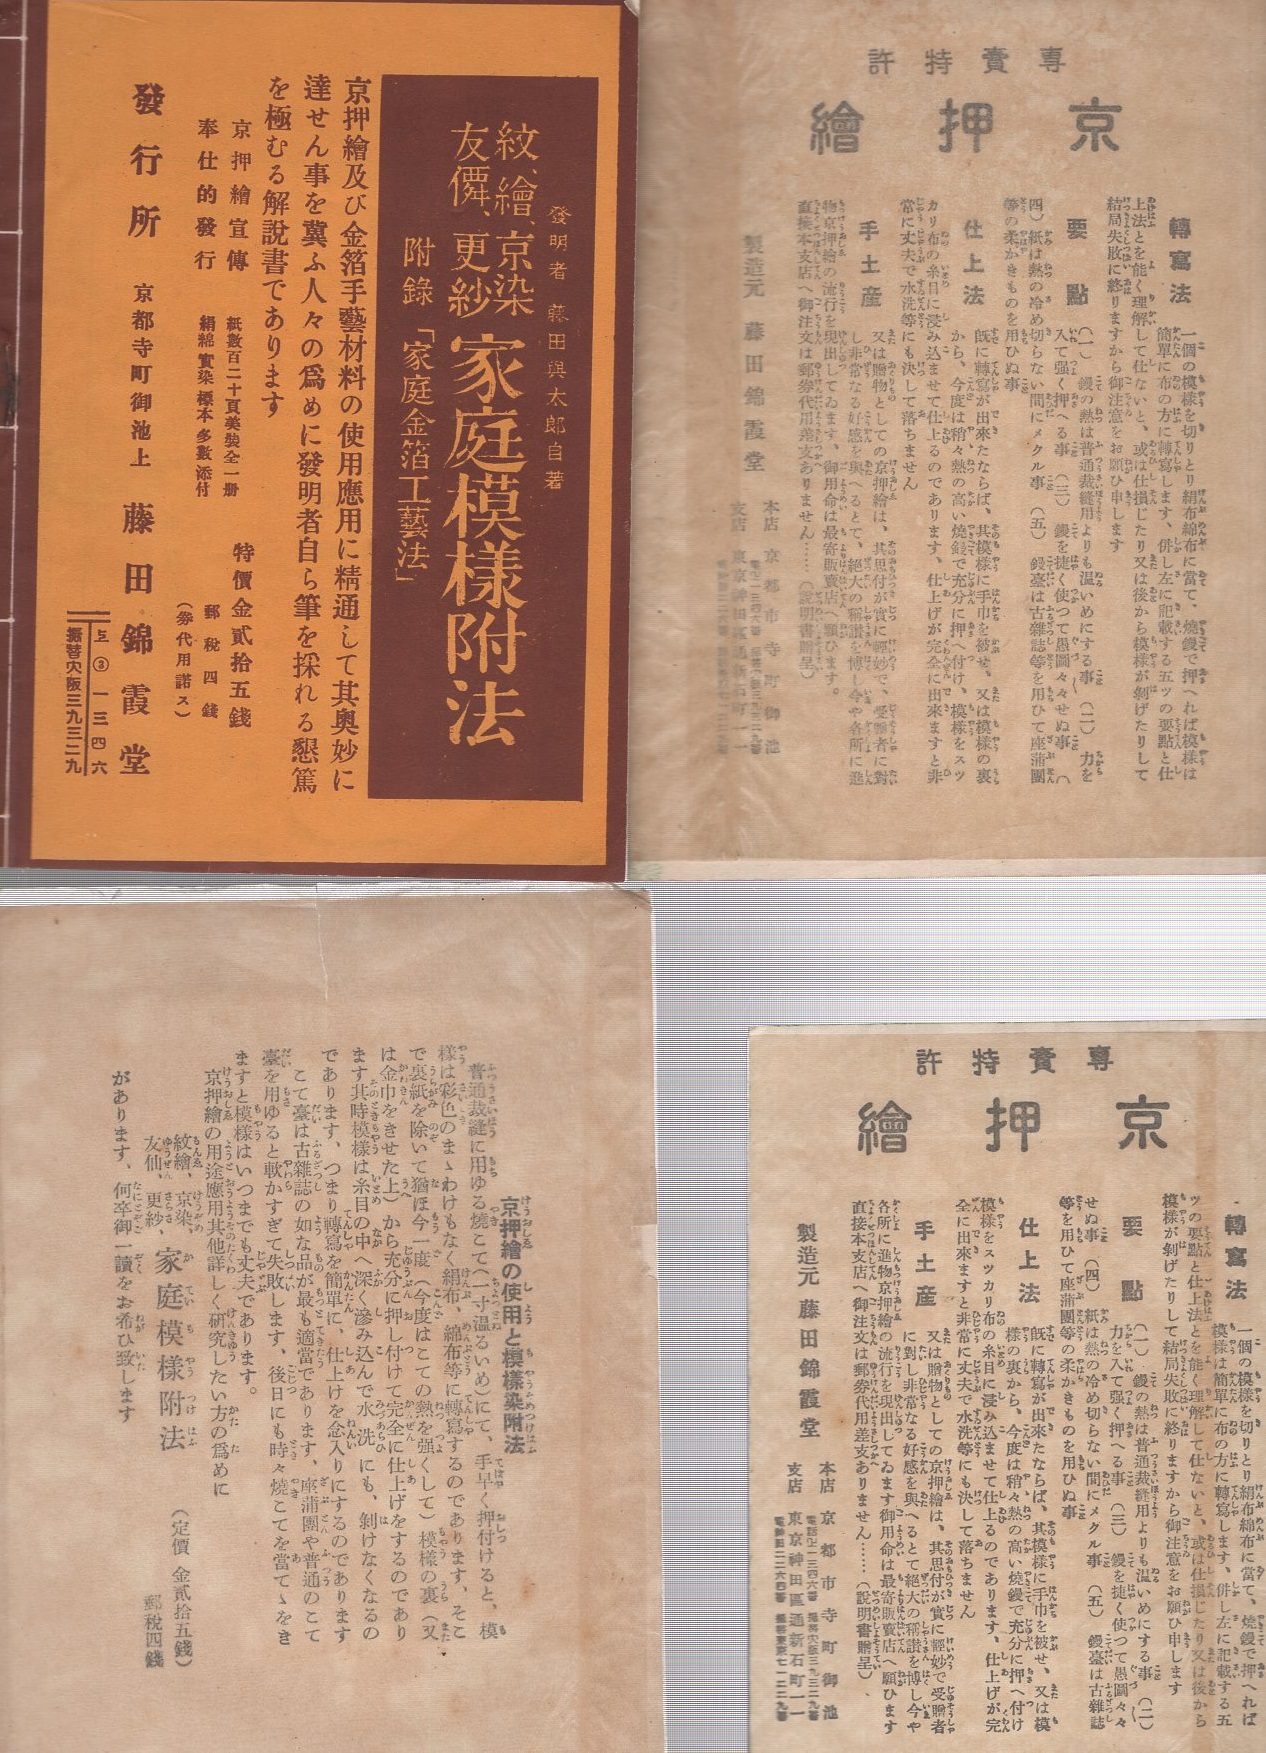 發明者 藤田與太郎自著
紋、繪、京染
友僊、更紗
家庭模樣附法
附錄「家庭金箔工藝法」
京押繪及び金箔手藝材料の使用應用に精通して其奧妙に
達せん事を冀ふ人々の爲めに發明者自ら筆を採れる懇篤
を極むる解說書であります
京押繪宣傳
奉仕的發行
紙數百二十頁美裝全一册
絹綿實染標本多數添付
特價金貳拾五錢
郵稅四錢
(劵代用諾ス)
發行所 京都寺町御池上 藤田錦霞堂
上③一三四六
振替大阪三九三二九
專賣特許
京押繪
轉寫法
一個の模樣を切りとり絹布綿布に當て、燒鏝で押へれば模樣は
簡單に布の方に轉寫します、併し左に記載する五ツの要點と仕
上法とを能く理解して仕ないと、或は仕損じたり又は後から模樣が剝げたりして
結局失敗に終りますから御注意をお願ひ申します
要點
(一)鏝の熱は普通裁縫用よりも温いめにする事(二)力を
入て强く押へる事(三)鏝を捷く使つて愚圖々々せぬ事(
四)紙は熱の冷め切らない間にメクル事(五)鏝臺は古雜誌等を用ひて座蒲團
等の柔かきものを用ひぬ事
仕上法
既に轉寫が出來たならば、其模樣に手巾を被せ、又は模樣の裏
から、今度は稍々熱の高い燒鏝で充分に押へ付け、模樣をスッ
カリ布の糸目に浸み込ませて仕上るのであります、仕上げが完全に出來ますと非
常に丈夫で水洗等にも決して落ちません
手土産
又は贈物としての京押繪は、其思付が實に輕妙で、受贈者に對
し非常なる好感を與へるとて、絕大の稱讃を博し今や各所に進
物京押繪の流行を現出してゐます、御用命は最寄販賣店へ願ひます。
直接本支店へ御注文は郵劵代用差支ありません……(說明書贈呈)
製造元 藤田錦霞堂
本店 京都市寺町御池
支店 東京神田區通新石町一一
京押繪の使用と模樣染附法
普通裁縫に用ゆる燒こて(一寸溫るいめ)にて、手早く押付けると、模
樣は彩色のまゝわけもなく絹布、綿布等に轉寫するのであります、そこ
で裏紙を除いて猶ほ今一度(今度はこての熱を强くして)模樣の裏(又
は金巾をきせた上)から充分に押し付けて完全に仕上げをするのであり
ます其時模樣は糸目の中へ深く滲み込んで水洗にも、剝けなくなるの
であります、つまり轉寫を簡單に、仕上げを念入りにするのであります
こて臺は古雜誌の如な品が最も適當であります、座蒲團や普通のこて
臺を用ゆると軟かすぎて失敗します、後日にも時々燒こてを當てゝをき
ますと模樣はいつまでも丈夫であります。
京押繪の用途應用其他詳しく硏究したい方の爲めに
紋繪、京染、
友仙、更紗、
家庭模樣附法
(定價 金貳拾五錢)
郵稅四錢
があります、何卒御一讀をお希ひ致します
專賣特許
京押繪
轉寫法
一個の模樣を切りとり絹布綿布に當て、燒鏝で押へれば
模樣は簡單に布の方に轉寫します、併し左に記載する五
ツの要點と仕上法とを能く理解して仕ないと、或は仕損じたり又は後から
模樣が剝げたりして結局失敗に終りますから御注意をお願ひ申します
要點
(一)鏝の熱は普通裁縫用よりも温いめにする事(二)
力を入て强く押へる事(三)鏝を捷く使つて愚圖々々
せぬ事(四)紙は熱の冷め切らない間にメクル事(五)鏝臺は古雜誌
等を用ひて座蒲團等の柔かきものを用ひぬ事
仕上法
既に轉寫が出來たならば、其模樣に手巾を被せ、又は模
樣の裏から、今度は稍々熱の高い燒鏝で充分に押へ付け
模樣をスッカリ布の糸目に浸み込ませて仕上るのであります、仕上げが完
全に出來ますと非常に丈夫で水洗等にも決して落ちません
手土産
又は贈物としての京押繪は、其思付が實に輕妙で受贈者
に對し非常なる好感を與へるとて絕大の稱讃を博し今や
各所に進物京押繪の流行を現出してゐます御用命は最寄販賣店へ願ひます
直接本支店へ御注文は郵劵代用差支ありません……(說明書贈呈)
製造元 藤田錦霞堂
本店 京都市寺町御池
支店 東京神田區通新石町一一